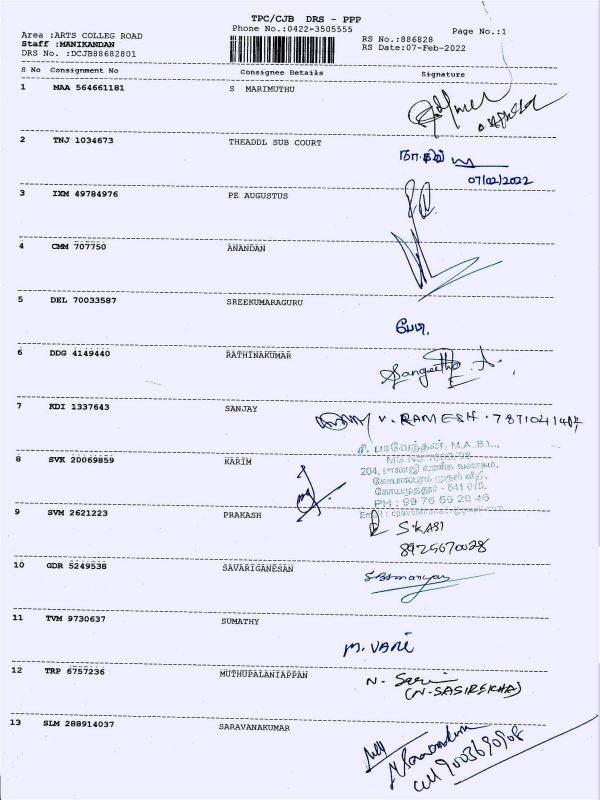 TPC/CJB DRS - PPP
Phone No.:0422-3505555
Page No.:1
Area :ARTS COLLEG ROAD
Staff :MANIKANDAN
DRS No. :DCJB88682801
RS No.:886828
RS Date:07-Feb-2022
S No Consignment No Consignee Details Signature
1 MAA 564661181 S MARIMUTHU
2 TNJ 1034673 THEADDL SUB COURT
07/02/2022
3 IXM 49784976 PE AUGUSTUS
4 CMM 707750 ANANDAN
5 DEL 70033587 SREEKUMARAGURU
6 DDG 4149440 RATHINAKUMAR
Sangeetha. A.
7 KDI 1337643 SANJAY
V. RAMESH. 7871041407
சி. பாவேந்தன், M.A.B.L.,
8 SVK 20069859 KARIM
204, பாலாஜி வணிக வளாகம்,
கோபாலபுரம் முதல் வீதி,
கோயமுத்தூர் - 641 018.
PH : 99 76 56 20 46
9 SVM 2621223 PRAKASH
S.KASI
8925670028
10 GDR 5249538 SAVARIGANESAN
11 TVM 9730637 SUMATHY
M. VANI
12 TRP 6757236 MUTHUPALANIAPPAN
N.
(N.SASIREKHA)
13 SLM 288914037 SARAVANAKUMAR
Cell 9003690908